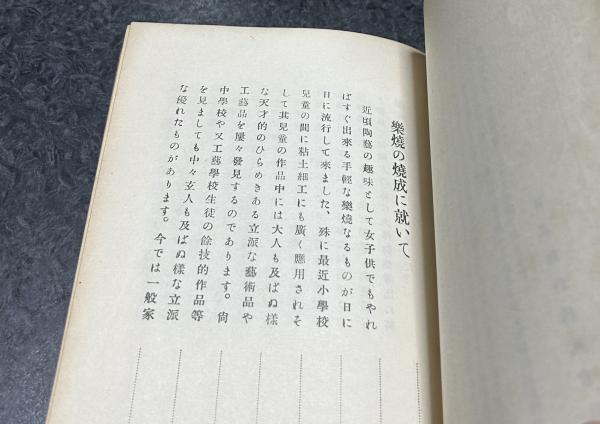 樂燒の燒成に就いて
近頃陶藝の趣味として女子供でもやれ
ばすぐ出來る手輕な樂燒なるものが日に
日に流行して來ました、殊に最近小學校
兒童の間に粘土細工にも廣く應用されそ
して其兒童の作品中には大人も及ばぬ樣
な天才的のひらめきある立派な藝術品や
工藝品を屢々發見するのであります。尙
中學校や又工藝學校生徒の餘技的作品等
を見ましても中々玄人も及ばぬ樣な立派
な優れたものがあります。今では一般家